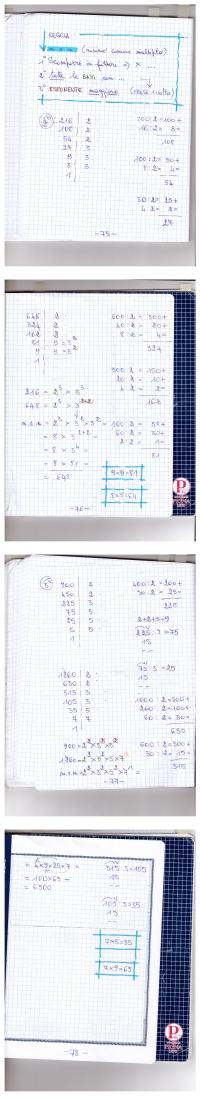 REGOLA
m.c.m. (minimo comune multiplo)
1° Scomporre in fattori
2° tutte le BASI con ...
3° ESPONENTE maggiore (prese 1 volta)
4° 216 2
108 2
54 2
27 3
9 3
3 3
1
200:2=100+
16:2= 8=
108
100:2= 50+
8:2= 4=
54
50:2= 25+
4:2= 2=
27
-75-
648 2
324 2
162 2
81 9=3²
9 9=3²
1
600:2=300+
40:2= 20+
8:2= 4=
324
300:2=150+
20:2= 10+
4:2= 2=
162
216=2³×3³
648=2³×3²⁺²
m.c.m.=2³×3²×3²=
=8×3²⁺²=
=8×3⁴=
=8×81=
=648
100:2= 50+
60:2= 30+
2:2= 1=
81
9×9=81
8×8=64
-76-
5° 900 2
450 2
225 3
75 3
25 5
5 5
1
400:2=200+
50:2= 25=
225
2+2+5=9
225:3=75
15
--
75:3=25
15
--
1260 2
630 2
315 3
105 3
35 5
7 7
1
1000:2=500+
200:2=100+
60:2= 30=
630
900=2²×3²×5²
1260=2²×3²×5×7
m.c.m=2²×3²×5²×7=
600:2=300+
30:2= 15=
315
-77-
=4×9×25×7=
=100×63=
=6300
315:3=105
15
--
105:3=35
15
--
7×5=35
7×9=63
-78-